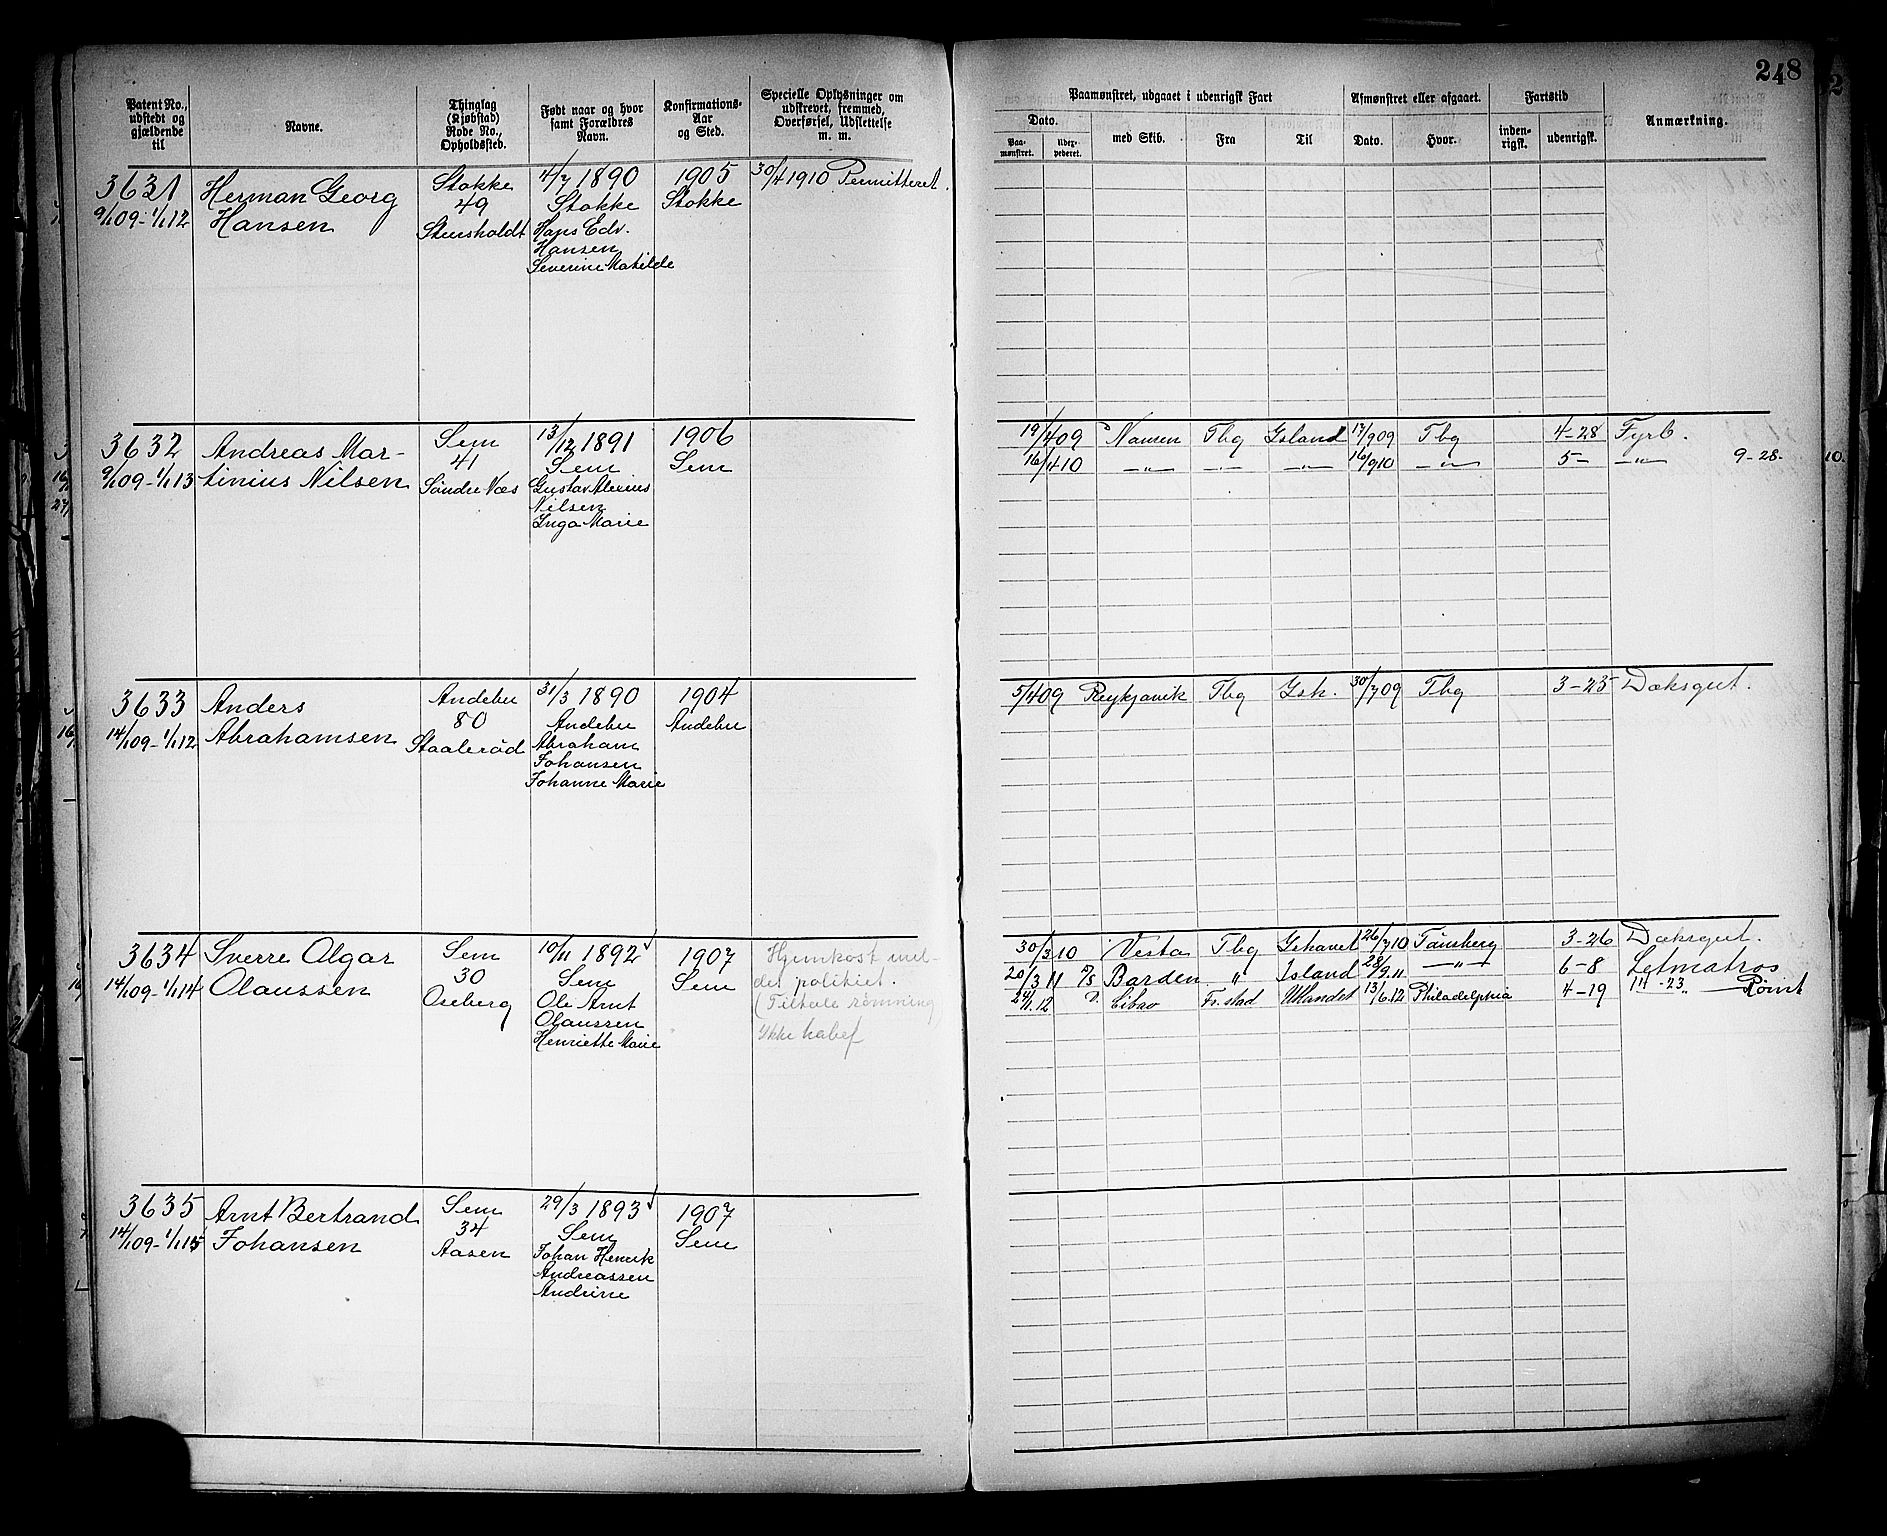 248
Patent No., udstedt og gjældende til
Navne.
Thinglag (Kjøbstad) Rode No., Opholdssted.
Født naar og hvor samt Forældres Navn.
Konfirmations-Aar og Sted.
Specielle Oplysninger om udskrevet, fremmed, Overførsel, Udslettelse m. m.
Paamønstret, udgaaet i udenrigsk Fart
Afmønstret eller afgaaet.
Fartstid
Anmærkning.
Dato.
Paa-mønstret.
med Skib.
Fra
Til
Dato.
Hvor.
inden-rigsk.
udenrigsk.
3631 Herman Georg Stokke 4/7 1890 1905 30/4 1910 Permitteret.
9/1 09-1/1 12 Hansen 49 Stokke Stokke
Stensholdt Hans Edv.
Hansen
Severine Matilde
3632 Andreas Mar- Sem 13/12 1891 1906
9/1 09-1/1 13 tinius Nilsen 41 Sem Sem
Søndre Næs Gustav Alexius
Nilsen
Inga Marie
19/4 09 Nansen Tbg Island 17/9 09 Tbg 4-28 Fyrb.
16/4 10 -"- -"- -"- 16/9 10 -"- 5- -"- 9-28-
3633 Anders Andebu 31/3 1890 1904
14/1 09-1/1 12 Abrahamsen 80 Andebu Andebu
Staalerød Abraham
Johansen
Johanne Marie
5/4 09 Reykjavik Tbg Ish. 30/7 09 Tbg 3-25 Dæksgut.
3634 Sverre Algar Sem 10/11 1892 1907 Hjemkost mel-
14/1 09-1/1 14 Olaussen 30 Sem Sem det politiet.
Oseberg Ole Arnt (Tiltale rømning)
Olaussen Ikke habef
Henriette Marie
30/3 10 Vesta Tbg Ishavet 26/7 10 Tønsberg 3-26 Dæksgut.
20/3 11 Barden " Island 28/9 11 -"- 6-8 Letmatros
24/1 12 Libav Fr.stad Utlandet 13/6 12 Philadelphia 4-19 Rømt
3635 Arnt Bertrand Sem 29/3 1893 1907
14/1 09-1/1 15 Johansen 34 Sem Sem
Aasen Johan Henrik
Andreassen
Andrine